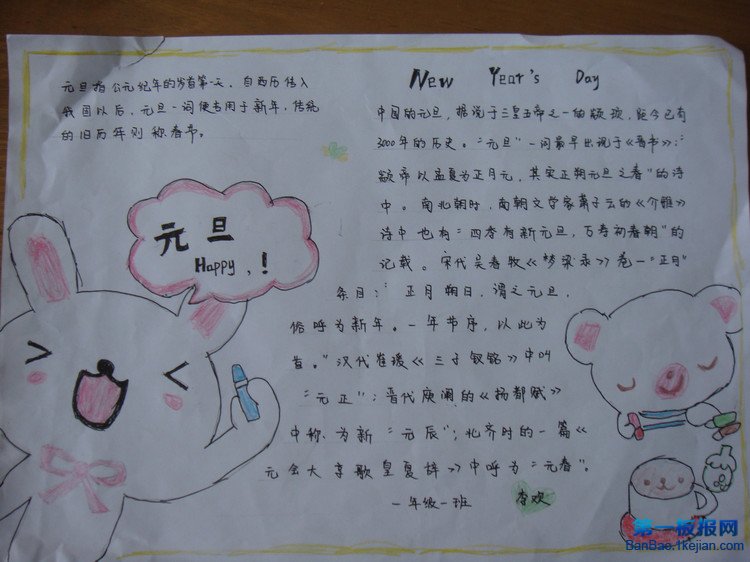 元旦指公元纪年的岁首第一天。自西历传入
我国以后,元旦一词便专用于新年,传统
的旧历年则称春节。
元旦
Happy,!
New Year's Day
中国的元旦,据说于三皇五帝之一的颛顼,距今已有
3000年的历史。"元旦"一词最早出现于《晋书》:"
颛帝以孟夏为正月元,其实正朔元旦之春"的诗
中。南北朝时,南朝文学家萧子云的《介雅》
诗中也有"四季有新元旦,万寿初春朝"的
记载。宋代吴春牧《梦梁录》卷一"正月"
条目:"正月朔日,谓之元旦,
俗呼为新年。一年节序,以此为
首。"汉代崔瑗《三子钗铭》中叫
"元正";晋代庾阐的《扬都赋》
中称为新"元辰";北齐时的一篇《
元会大享歌皇夏辞》中呼为"元春"。
一年级一班 李欢
第一板报网
BanBao.1kejian.com